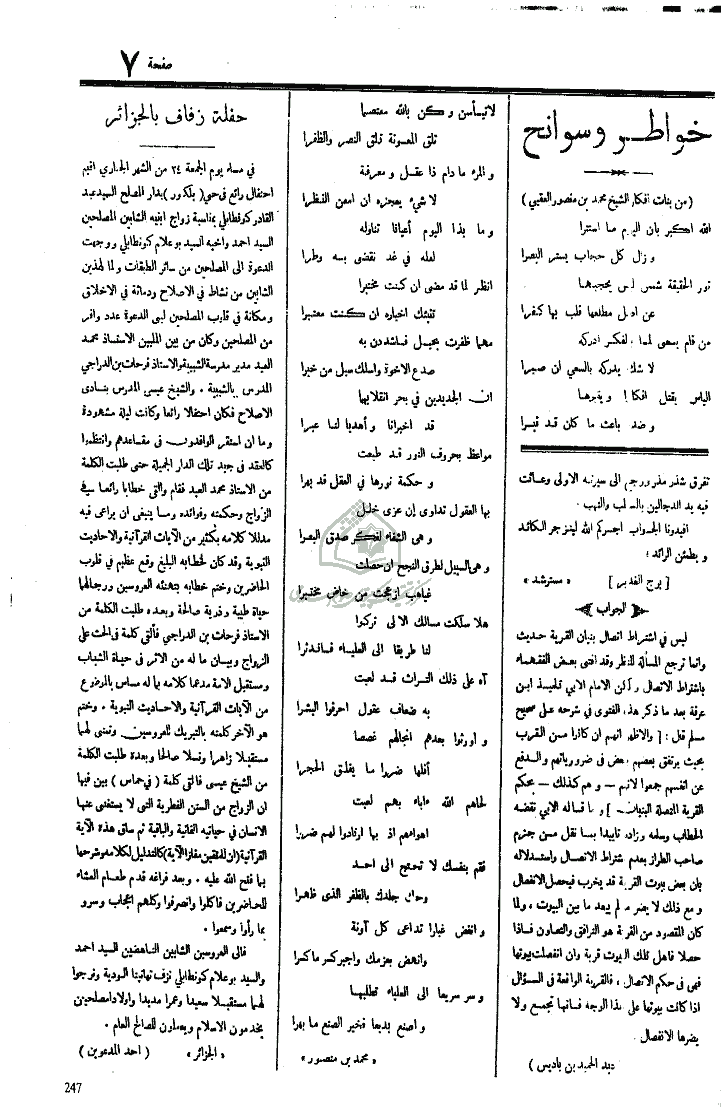 صفحة ٧
خواطر وسوانح
(من بنات افكار الشيخ محمد بن منصور العقبي)
الله اكبر بان اليوم ما استترا
وزال كل حجاب يستر البصرا
نور الحقيقة شمس ليس يحجبها
عن اهل مطلعها قلب بها كفرا
من قام يسعى لهذا الفكر ادركه
لا شك يدركه بالسعي ان صبرا
الياس يقتل افكارا ويقبرها
وضد باعث ما كان قد قبرا
تفرق شذر مذر ورجع الى سيرته الاولى وعاثت
فيه يد الدجالين بالسلب والنهب .
افيدونا الجواب اجركم الله لينزجر الكائد
ويطمئن الرائد ؛
[ برج الغدير ] « مسترشد »
الجواب
ليس في اشتراط اتصال بنيان القرية حديث
وانما ترجع المسألة للنظر وقد افتى بعض الفقهاء
باشتراط الاتصال ولكن الامام الابي تلميذ ابن
عرفة بعد ما ذكر هذه الفتوى في شرحه على صحيح
مسلم قال : [ والاظهر انهم ان كانوا من القرب
بحيث يرتفق بعضهم ببعض في ضرورياتهم والدفع
عن انفسهم جمعوا لانهم – وهم كذلك – بحكم
القرية المتصلة البنيان ] وما قاله الابي نقله
الحطاب وسلمه وزاده تاييدا بما نقل من جزم
صاحب الطراز بعدم شتراط الاتصال واستدلاله
بان بعض بيوت القرية قد يخرب فيحصل الانفصال
ومع ذلك لا يضر ما لم يبعد ما بين البيوت ، ولما
كان المقصود من القرية هو الترافق والتعاون فاذا
حصلا فاهل تلك البيوت قرية وان انفصلت بيوتها
فهي في حكم الاتصال ، فالقرية الواقعة في السؤال
اذا كانت بيوتها على هذا الوجه فانها تجمع ولا
يضرها الانفصال .
عبد الحميد بن باديس )
لا تيأسن وكن بالله معتصما
تلق المعونة تلق النصر والظفرا
والمرء ما دام ذا عقل ومعرفة
لا شيء يعجزه ان امعن النظرا
وما بذا اليوم أعيانا تناوله
لعله في غد نقضي به وطرا
انظر لما قد مضى ان كنت مختبرا
تنبئك اخباره ان كنت معتبرا
مهما ظفرت بحبل فاشددن به
صدع الاخوة واسلك سبل من خبرا
ان الجديدين في بحر انقلابهما
قد اخبرانا وأهديا لنا عبرا
مواعظ بحروف النور قد طبعت
وحكمة نورها في العقل قد بهرا
بها العقول تداوى إن عزى خلل
وهي الشفاء لفكر صدق البصرا
وهي السبيل لطرق النجح ان حصلت
غياهب ازعجت من خاض مختبرا
هلا سلكت مسالك الالى تركوا
لنا طريقا الى العلياء فاندثرا
آه على ذلك التراث قد لعبت
به ضعاف عقول احرفوا البشرا
وأورثوا بعدهم انجالهم غصصا
أقلها ضررا ما يفلق الحجرا
لحاهم الله ءاباء بهم لعبت
اهواءهم اذ بها ارتادوا لهم ضررا
فقم بنفسك لا تحتج الى احد
وحك جلدك بالظفر الذي ظهرا
وانفض غبارا تداعى كل آونة
وانهض بعزمك واجبر كسر ما كسرا
وسر سريعا الى العلياء تطلبها
واصنع بديعا فخير الصنع ما بهرا
« محمد بن منصور »
حفلة زفاف بالجزائر
في مساء يوم الجمعة ٢٤ من الشهر الجاري اقيم
احتفال رائع في حي ( بلكور ) بدار المصلح السيد عبد
القادر كونطابلي بمناسبة زواج ابنيه الشابين المصلحين
السيد احمد واخيه السيد بوعلام كونطابلي ووجهت
الدعوة الى المصلحين من سائر الطبقات ولما لهذين
الشابين من نشاط في الاصلاح ودماثة في الاخلاق
ومكانة في قلوب المصلحين لبى الدعوة عدد وافر
من المصلحين وكان من بين الملبين الاستاذ محمد
العيد مدير مدرسة الشبيبة والاستاذ فرحات بن الدراجي
المدرس بالشبيبة . والشيخ عيسى المدرس بنادي
الاصلاح فكان احتفالا رائعا وكانت ليلة مشهودة
وما ان استقر الوافدون في مقاعدهم وانتظموا
كالعقد في جيد تلك الدار الجميلة حتى طلبت الكلمة
من الاستاذ محمد العيد فقام والقى خطابا رائعا في
الزواج وحكمته وفوائده وما ينبغي ان يراعى فيه
مدللا كلامه بكثير من الآيات القرآنية والاحاديث
النبوية وقد كان لخطابه البليغ وقع عظيم في قلوب
الحاضرين وختم خطابه بتهنئة العروسين ورجا لهما
حياة طيبة وذرية صالحة وبعده طلبت الكلمة من
الاستاذ فرحات بن الدراجي فألقى كلمة في الحث على
الزواج وبيان ما له من الاثر في حياة الشباب
ومستقبل الامة مدعما كلامه بما له مساس بالموضوع
من الآيات القرآنية والاحاديث النبوية . وختم
هو الآخر كلمته بالتبريك للعروسين وتمنى لهما
مستقبلا زاهرا ونسلا صالحا وبعده طلبت الكلمة
من الشيخ عيسى فالقى كلمة ( في حماس ) بين فيها
ان الزواج من السنن الفطرية التي لا يستغنى عنها
الانسان في حياتيه الفانية والباقية ثم ساق هذه الآية
القرآنية (ان للمتقين مفازا الآية) كالتدليل لكلامه وشرحها
بما فتح الله عليه . وبعد فراغه قدم طعام العشاء
للحاضرين فاكلوا وانصرفوا وكلهم اعجاب وسرور
بما رأوا وسمعوا .
فالى العروسين الشابين الناهضين السيد احمد
والسيد بوعلام كونطابلي نزف تهانينا الودية ونرجوا
لهما مستقبلا سعيدا وعمرا مديدا واولادا مصلحين
يخدمون الاسلام ويعملون للصالح العام .
« الجزائر » ( احد المدعوين )
247